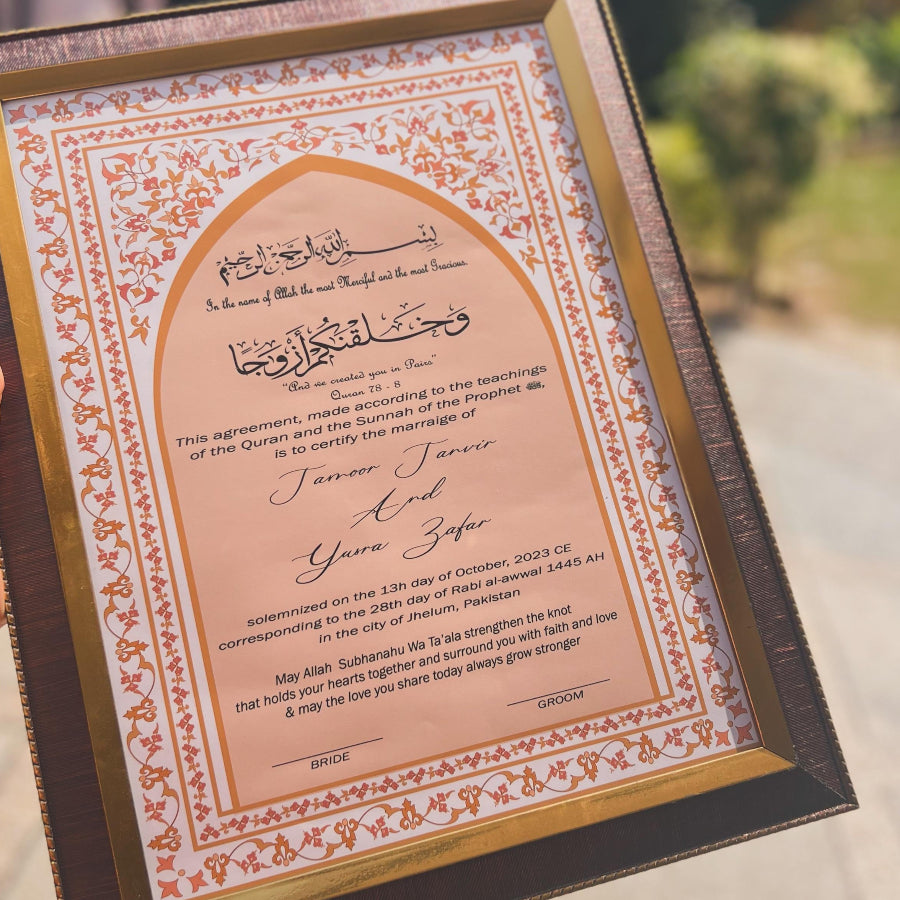 بِسْمِ اللهِ الرَّحْمٰنِ الرَّحِيْمِ
In the name of Allah the most Merciful and the most Gracious.
وَخَلَقْنَكُمْ أَزْوَجًا
"And we created you in Pairs"
Quran 78 - 8
This agreement, made according to the teachings
of the Quran and the Sunnah of the Prophet ﷺ,
is to certify the marraige of
Tamoor Tanvir
And
Yusra Zafar
solemnized on the 13h day of October, 2023 CE
corresponding to the 28th day of Rabi al-awwal 1445 AH
in the city of Jhelum, Pakistan
May Allah Subhanahu Wa Ta'ala strengthen the knot
that holds your hearts together and surround you with faith and love
& may the love you share today always grow stronger
GROOM
BRIDE